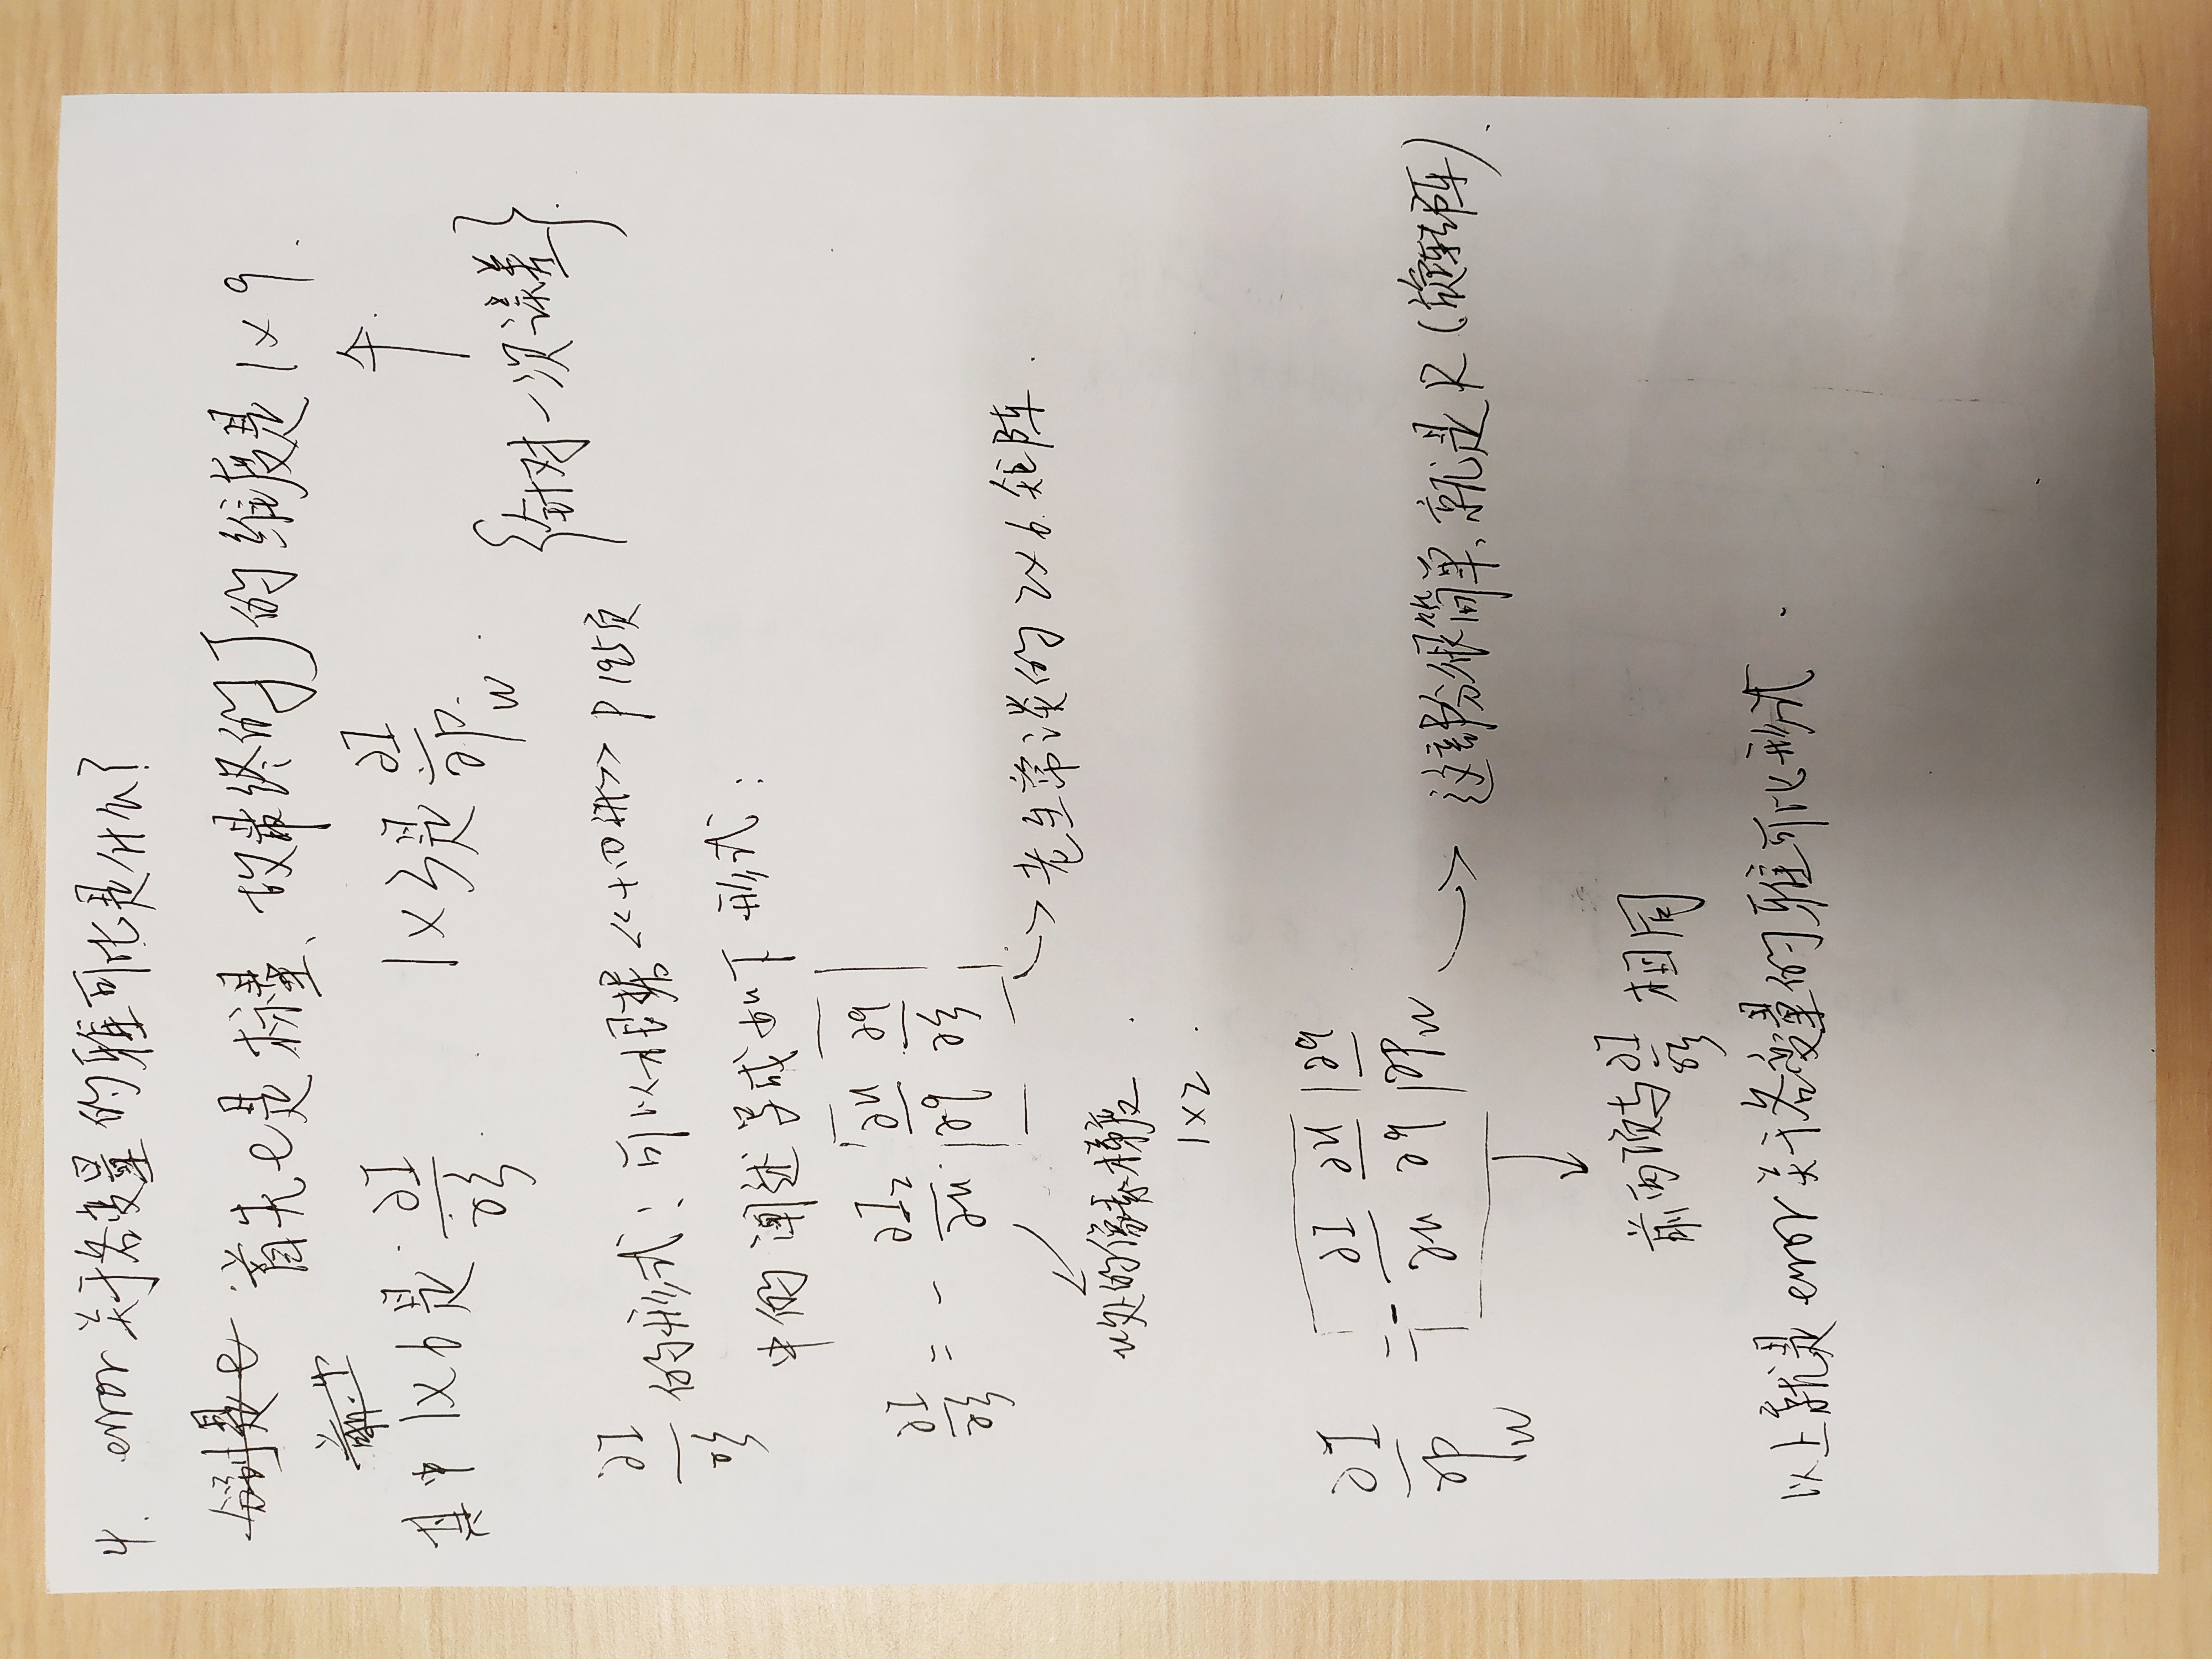 4. error关于各变量的雅可比是什么?
分别是e 首先e是标量、故最终的J的维度是 1×9.
其中 1×6是 ∂I/∂ξ. 1×3是 ∂I/∂P_w.
{针对一次误差}
∂I/∂ξ 的形式: 可以根据<<十四讲>> P195页
中的阐述写成如下形式:
∂I/∂ξ = - ∂I₂/∂u · ∂u/∂q ∂q/∂ξ
老生常谈的 2×6 矩阵.
u处的像素梯度.
1×2.
∂I/∂P_w = - ∂I/∂u ∂u/∂q ∂q/∂P_w
这部分很简单、就是 R (旋转矩阵).
前两项与 ∂I/∂ξ 相同
以上就是 error关于各变量的雅可比形式.